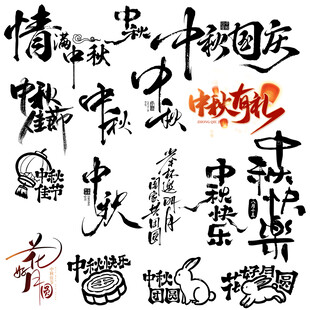 情满中秋
中秋
中秋国庆
中秋佳节
中秋
中秋
中秋有礼
中秋佳节
中秋
举杯邀明月
阖家共团圆
中秋快乐
中秋快乐
花好月圆
中秋快乐
中秋团圆
花好月圆